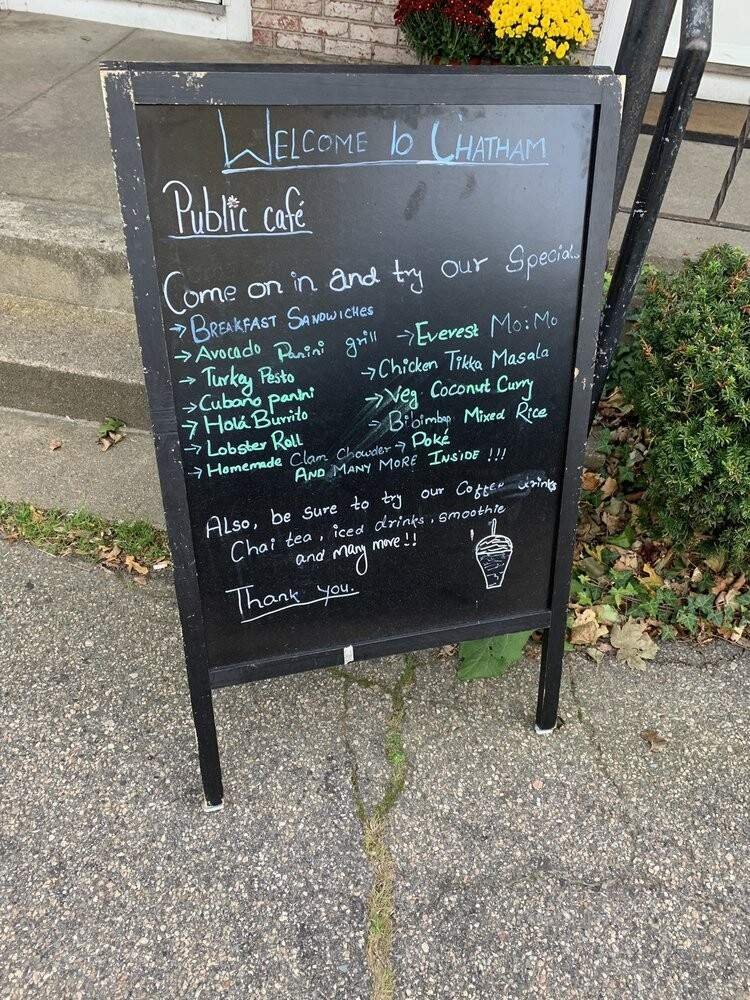 WELCOME to CHATHAM
Public café
Come on in and try our Special..
→ BREAKFAST SANDWICHES
→ Avocado Panini grill
→ Turkey Pesto
→ Cubano panini
→ Holá Burrito
→ Lobster Roll
→ Homemade Clam Chowder
→ Everest Mo:Mo
→ Chicken Tikka Masala
→ Veg. Coconut Curry
→ Bibimbap Mixed Rice
→ Poké
AND MANY MORE INSIDE !!!
Also, be sure to try our Coffee drinks
Chai tea, iced drinks, smoothie
and many more!!
Thank you.